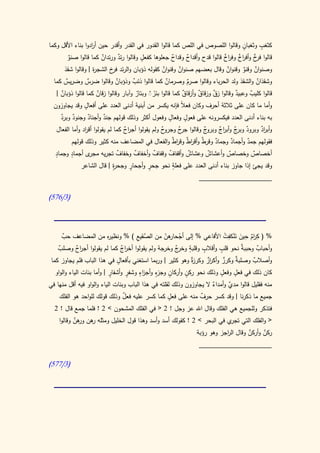 كثغبٍ وثغبانٍ وقالوا اللصوص في اللص كما قالوا القدور في القدر وأقدر حين أرادوا بناء الأقل وكما
قالوا فرخٌ وأفراخٌ وفراخٌ قالوا قدح وأقداحٌ وقداحٌ جعلوها كفعلٍ وقالوا رئدٌ ورئدانٌ كما قالوا صنوٌ
وصنوانٌ وقنوٌ وقنوانٌ وقال بعضهم صنوانٌ وقنوانٌ كقوله ذؤبان والرئد فرخ الشجرة { وقالوا شقذٌ
وشقذانٌ والشقذ ولد الحرباء وقالوا صرمٌ وصرمانٌ كما قالوا ذئبٌ وذؤبانٌ وقالوا ضرسٌ وضريسٌ كما
قالوا كليبٌ وعبيدٌ وقالوا زقٌ وزقاقٌ وأزقاقٌ كما قالوا بئارٌ ٌ وبئارٌ وأبار وقالوا زقانٌ كما قالوا ذؤبانٌ {
وأما ما كان على ثلاثة أحرف وكان فعلاً فإنه يكسر من أبنية أدنى العدد على أفعالٍ وقد يجاوزون
به بناء أدنى العدد فيكسرونه على فعولٍ وفعالٍ وفعول أكثر وذلك قولهم جندٌ وأجنادٌ وجنودٌ وبردٌ
وأبرادٌ وبرودٌ وبرجٌ وأبراجٌ وبروجٌ وقالوا جرحٌ وجروحٌ ولم يقولوا أجراحٌ كما لم يقولوا أقراد وأما الفعال
فقولهم جمدٌ وأجمادٌ وجمادٌ وقرطٌ وأقراطٌ وقراطٌ والفعال في المضاعف منه كثير وذلك قولهم
أخصاصٌ وخصاصٌ وأعشاشٌ وعشاشٌ وأقفافٌ وقفافٌ وأخفافٌ وخفافٌ تجريه مجرى أجمادٍ وجمادٍ
وقد يجئ إذا جاوز بناء أدنى العدد على فعلةٍ نحو جحرٍ وأجحارٍ وجحرةٍ { قال الشاعر
(576/3)
% ( كرامٌ حين تنكفِتُ الأفاعِي % إلى أجْحارهنّ من الصّقِيعِ ) % ونظيره من المضاعف حبٌّ
وأحبابٌ وحببةٌ نحو قلبٍ وأقلابٍ وقلبةٍ وخرجٍ وخرجة ولم يقولوا أخراجٌ كما لم يقولوا أجراحٌ وصلبٌ
وأصلابٌ وصلبةٌ وكرزٌ وأكرازٌ وكرزةٌ وهو كثير { وربما استغني بأفعالٍ في هذا الباب فلم يجاوز كما
كان ذلك في فعلٍ وفعلٍ وذلك نحو ركنٍ وأركانٍ وجزءٍ وأجزاءٍ وشفرٍ وأشفارٍ { وأما بنات الياء والواو
منه فقليل قالوا مديٌ وأمداءٌ لا يجاوزون وذلك لقلته في هذا الباب وبنات الياء والواو فيه أقل منها في
جميع ما ذكرنا { وقد كسر حرفٌ منه على فعلٍ كما كسر عليه فعلٌ وذلك قولك للواحد هو الفلك
فتذكر وللجميع هي الفلك وقال الله عز وجل ! 2 < في الفلك المشحون > 2 ! فلما جمع قال ! 2
< والفلك التي تجري في البحر > 2 ! كقولك أسد وأسد وهذا قول الخليل ومثله رهن ورهنٌ وقالوا
ركنٌ وأركنٌ وقال الراجز وهو رؤبة
(577/3)